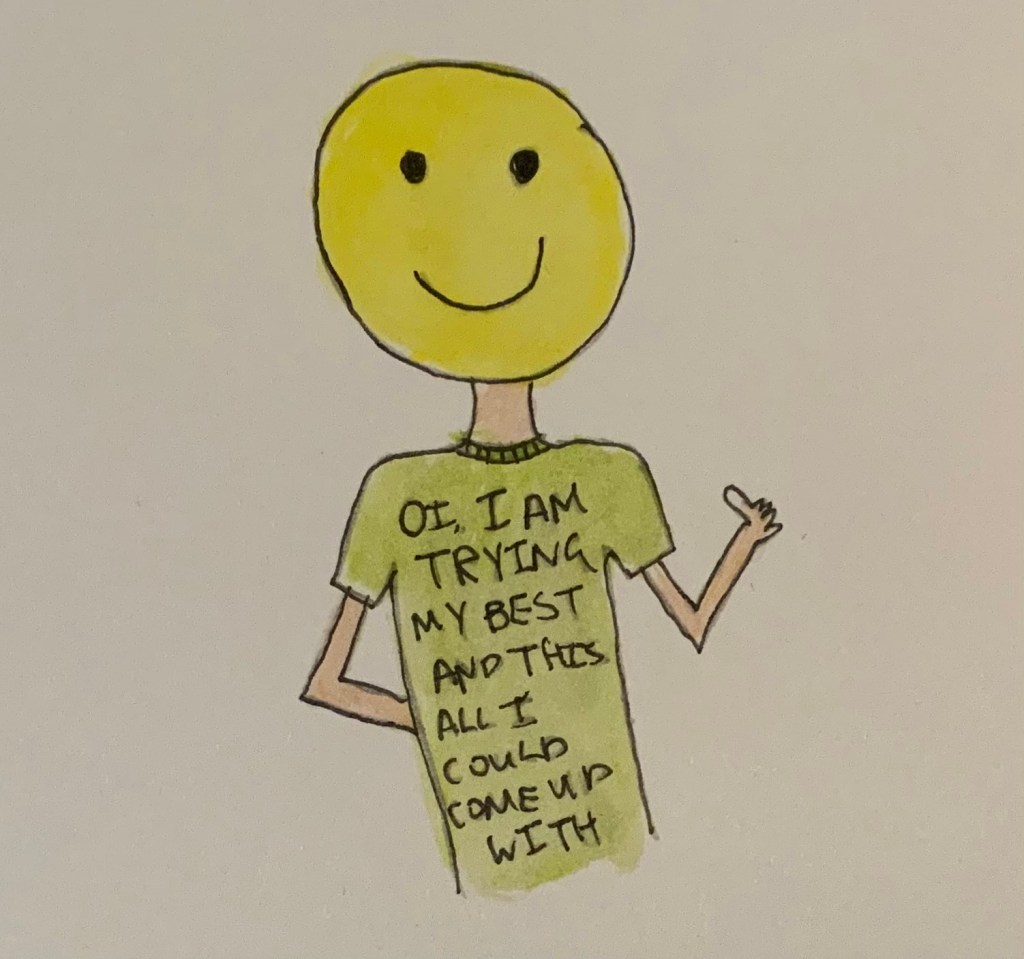 OI, I AM
TRYING
MY BEST
AND THIS
ALL I
COULD
COME UP
WITH